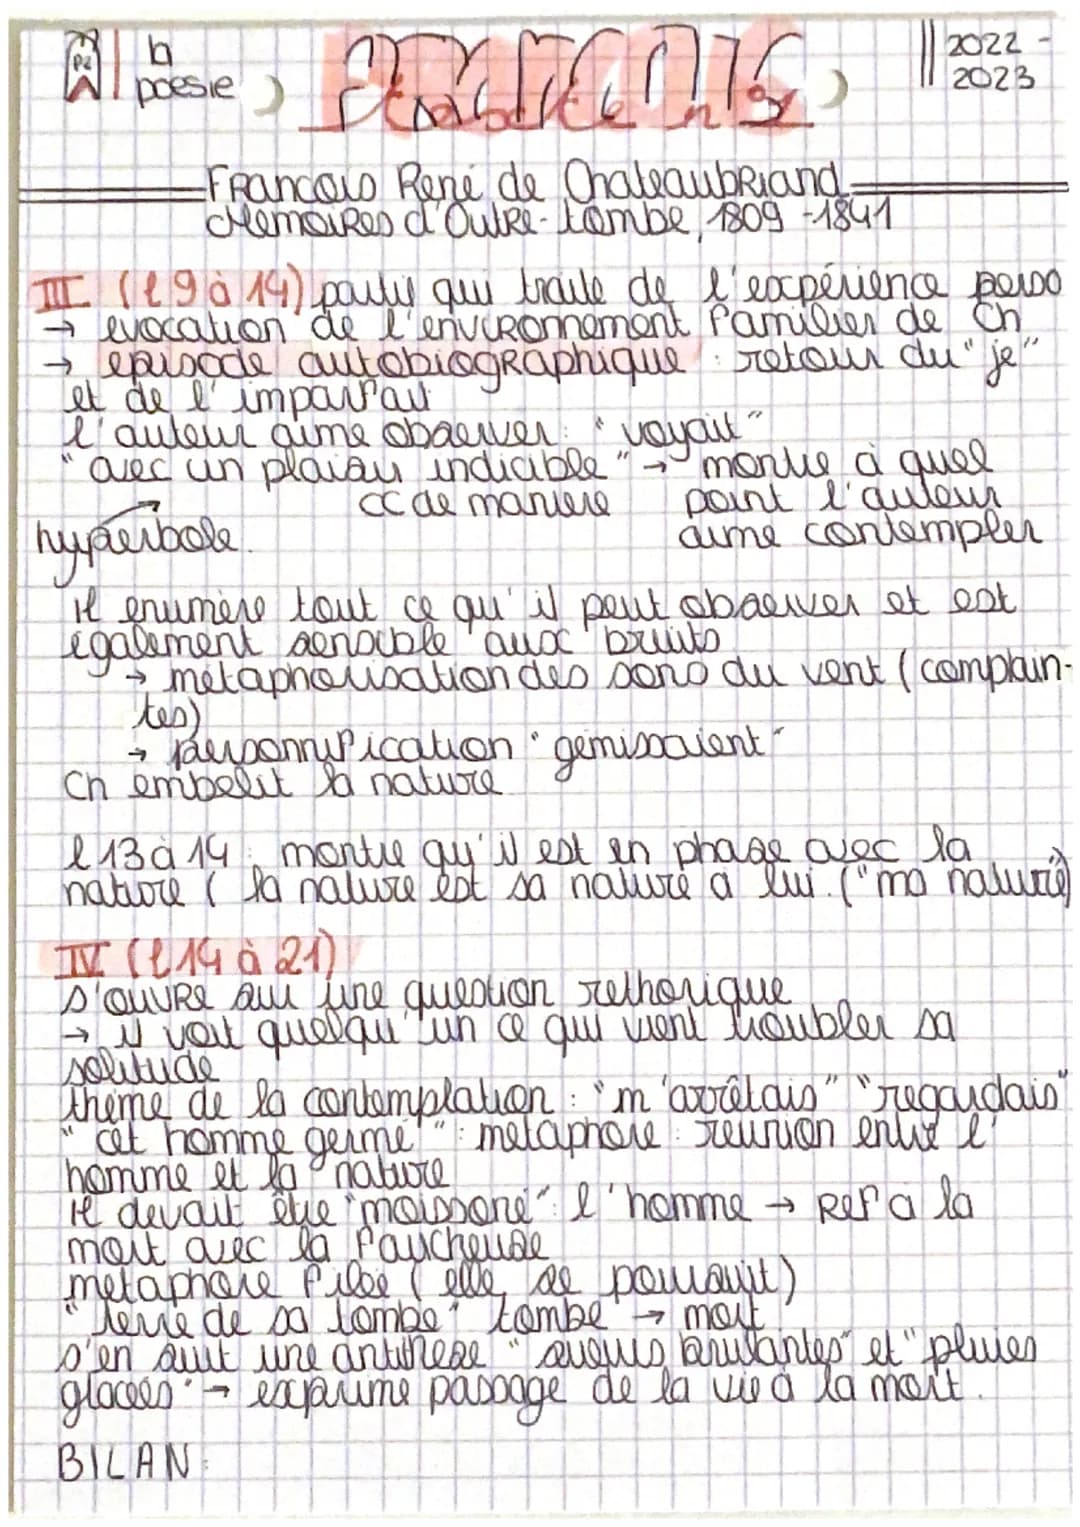 la
poesie
FRANCAIS
2022 -
2023
François René de ChateaubRiand
MemoiRes d'OutRe-tombe, 1809 - 1841
III (l 9 à 14) partie qui traite de l'expérience perso
→ evocation de l'enviRonnement familier de Ch
→ episode autobiogRaphique : retour du "je"
et de l'imparfait
l'auteur aime observer : "voyait"
"avec un plaisir indicible" → montre à quel
CC de maniere point l'auteur
hyperbole. aime contempler
Il enumère tout ce qu'il peut observer et est
également sensible aux bruits
→ métaphorisation des sons du vent (complain-
tes)
→ personnification "gémissaient"
Ch embelit la nature
l 13 à 14 : montre qu'il est en phase avec la
nature ( la nature est sa nature à lui. ("ma nature")
IV (l 14 à 21)
S'ouvRe sur une question rethorique
→ il voit quelqu'un ce qui vient troubler sa
solitude
thème de la contemplation : "m'arrêtais" "regardais"
"cet homme germé" : metaphore : reunion entre l'
homme et la nature
Il devait être "moissoné" : l'homme → Ref à la
mort avec la faucheuse
métaphore filée ( elle se poursuit)
"terre de sa tombe" tombe → mort
s'en suit une antithese "sueurs brulantes" et "pluies
glacées" → exprime passage de la vie à la mort.
BILAN :